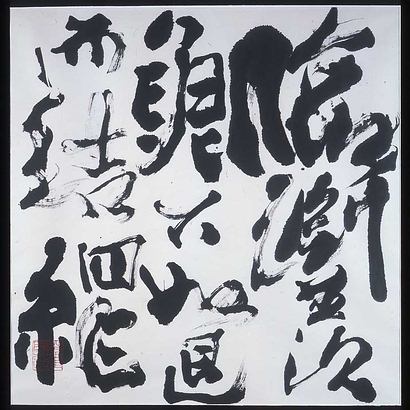 臨淵羨
魚不如退
而結網